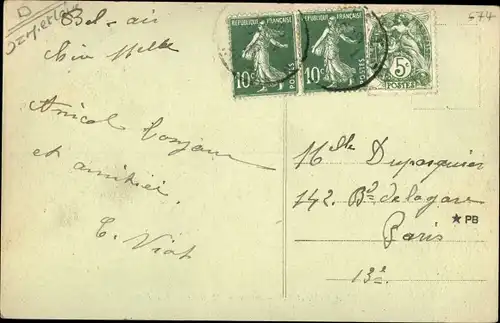 D
Bel-air
Chère Melle
Amical bonjour
et amitiés
C. Viot
REPUBLIQUE FRANÇAISE
10c
POSTES
REPUBLIQUE FRANÇAISE
10c
POSTES
5c
POSTES
574
Melle Duparquier
142. Bd de la gare
Paris
13e
★ PB